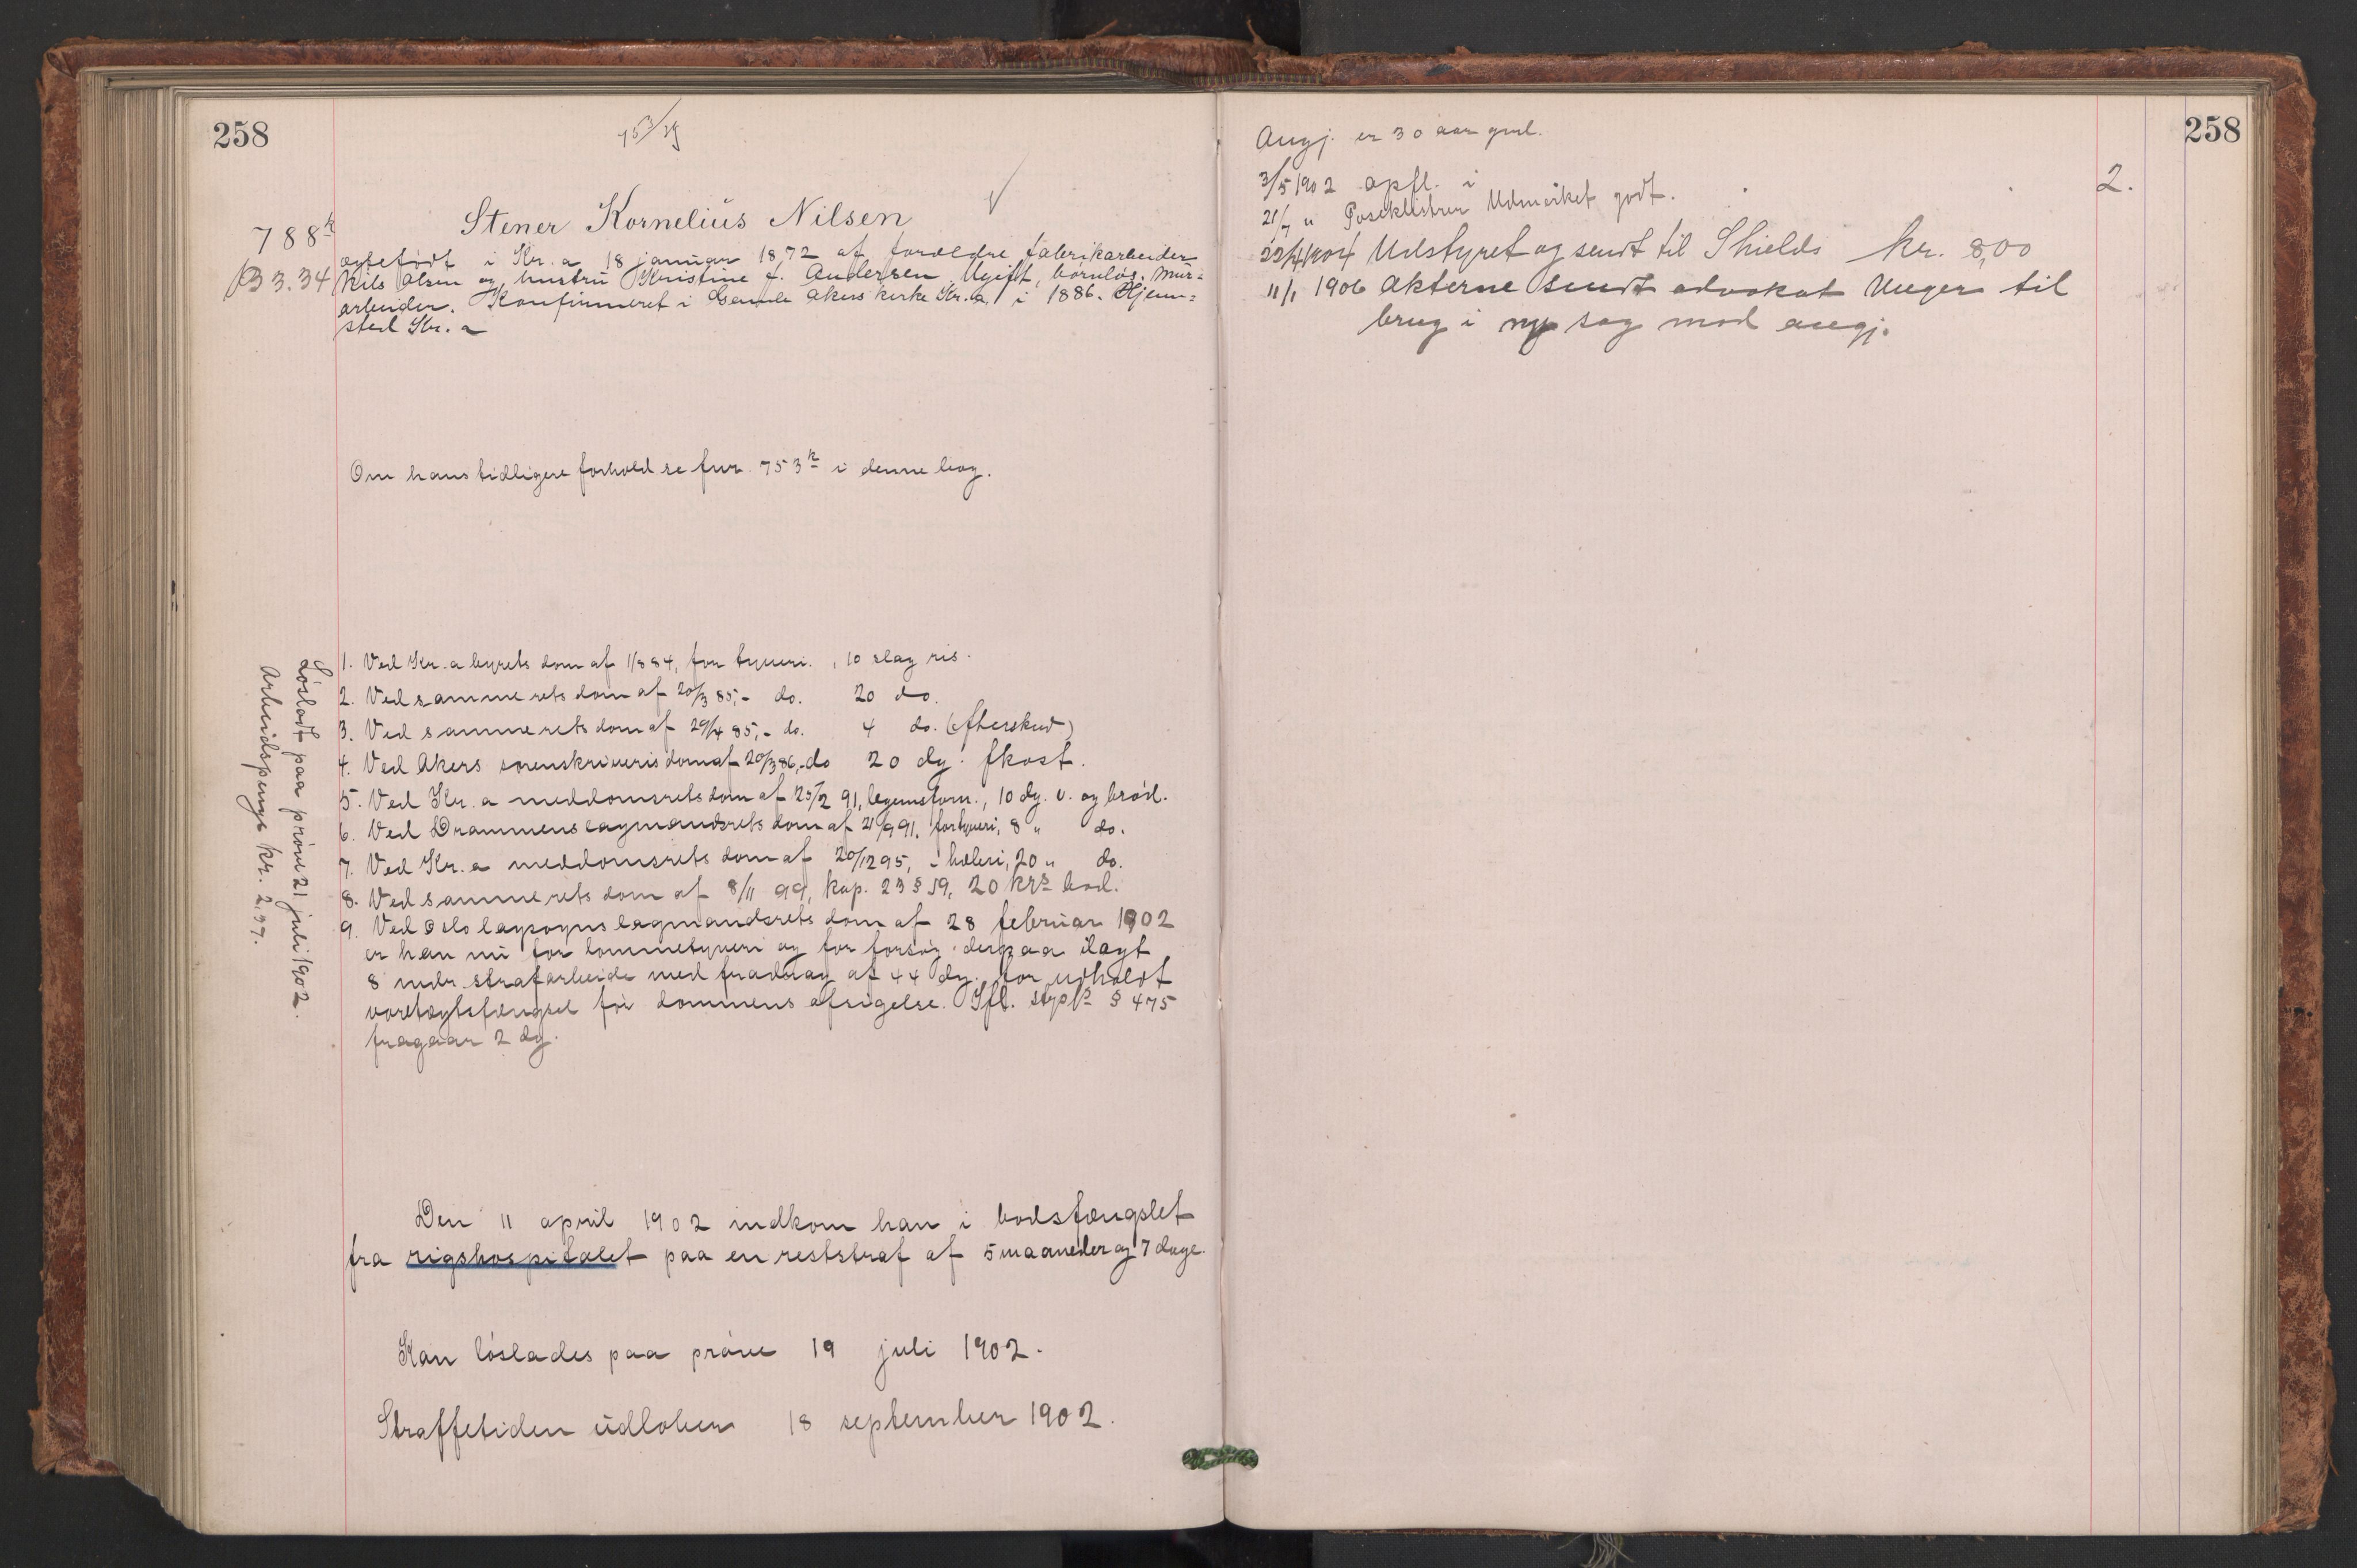 258
753/
788 k
Stener Kornelius Nilsen
ægtefødt i Kr.a 18 januar 1872 af forældre fabrikarbeider
B 3.34
Nils Olsen og hustru Kristine f. Andersen. Ugift, børnløs. Mur=
arbeider. Konfirmeret i Gamle Akers kirke Kr.a i 1886. Hjem=
sted Kr.a
Om hans tidligere forhold se fnr. 753 k i denne bog.
1. Ved Kr.a byrets dom af 1/8 84, for tyveri, 10 slag ris.
2. Ved samme rets dom af 20/3 85,- do. 20 do.
3. Ved samme rets dom af 29/4 85,- do. 4 do. (efterskud)
4. Ved Akers sorenskriveris dom af 20/3 86,- do 20 dg. fkost.
5. Ved Kr.a meddomsrets dom af 25/2 91, legemsforn., 10 dg. v. og brød.
6. Ved Drammens lagmandsrets dom af 21/9 91, for tyveri, 8 " do.
7. Ved Kr.a meddomsrets dom af 20/12 95, - hæleri, 20 " do.
8. Ved samme rets dom af 8/11 99, kap. 23 § 59, 20 krs bod.
9. Ved Oslo lagsogns lagmandsrets dom af 28 februar 1902
er han nu for lommetyveri og for forsøg derpaa ilagt
8 mdr. strafarbeide med fradrag af 44 dg. for udholdt
varetægtsfængsel før dommens afsigelse. Ifl. stppl § 475
fragaar 2 dg.
Løsladt paa prøve 21 juli 1902.
Arbeidspenge kr. 2,97.
Den 11 april 1902 indkom han i bodsfængslet
fra rigshospitalet paa en reststraf af 5 maaneder og 7 dage.
Kan løslades paa prøve 19 juli 1902.
Straffetiden udløber 18 september 1902.
258
Angj. er 30 aar gml.
3/5 1902 opfl. i 2.
21/7 " Udmerket godt.
22/4 1904 Udstyret og sendt til Shields kr. 8,00
11/1 1906 Akterne sendt advokat Unger til
brug i ny sag mod angj.